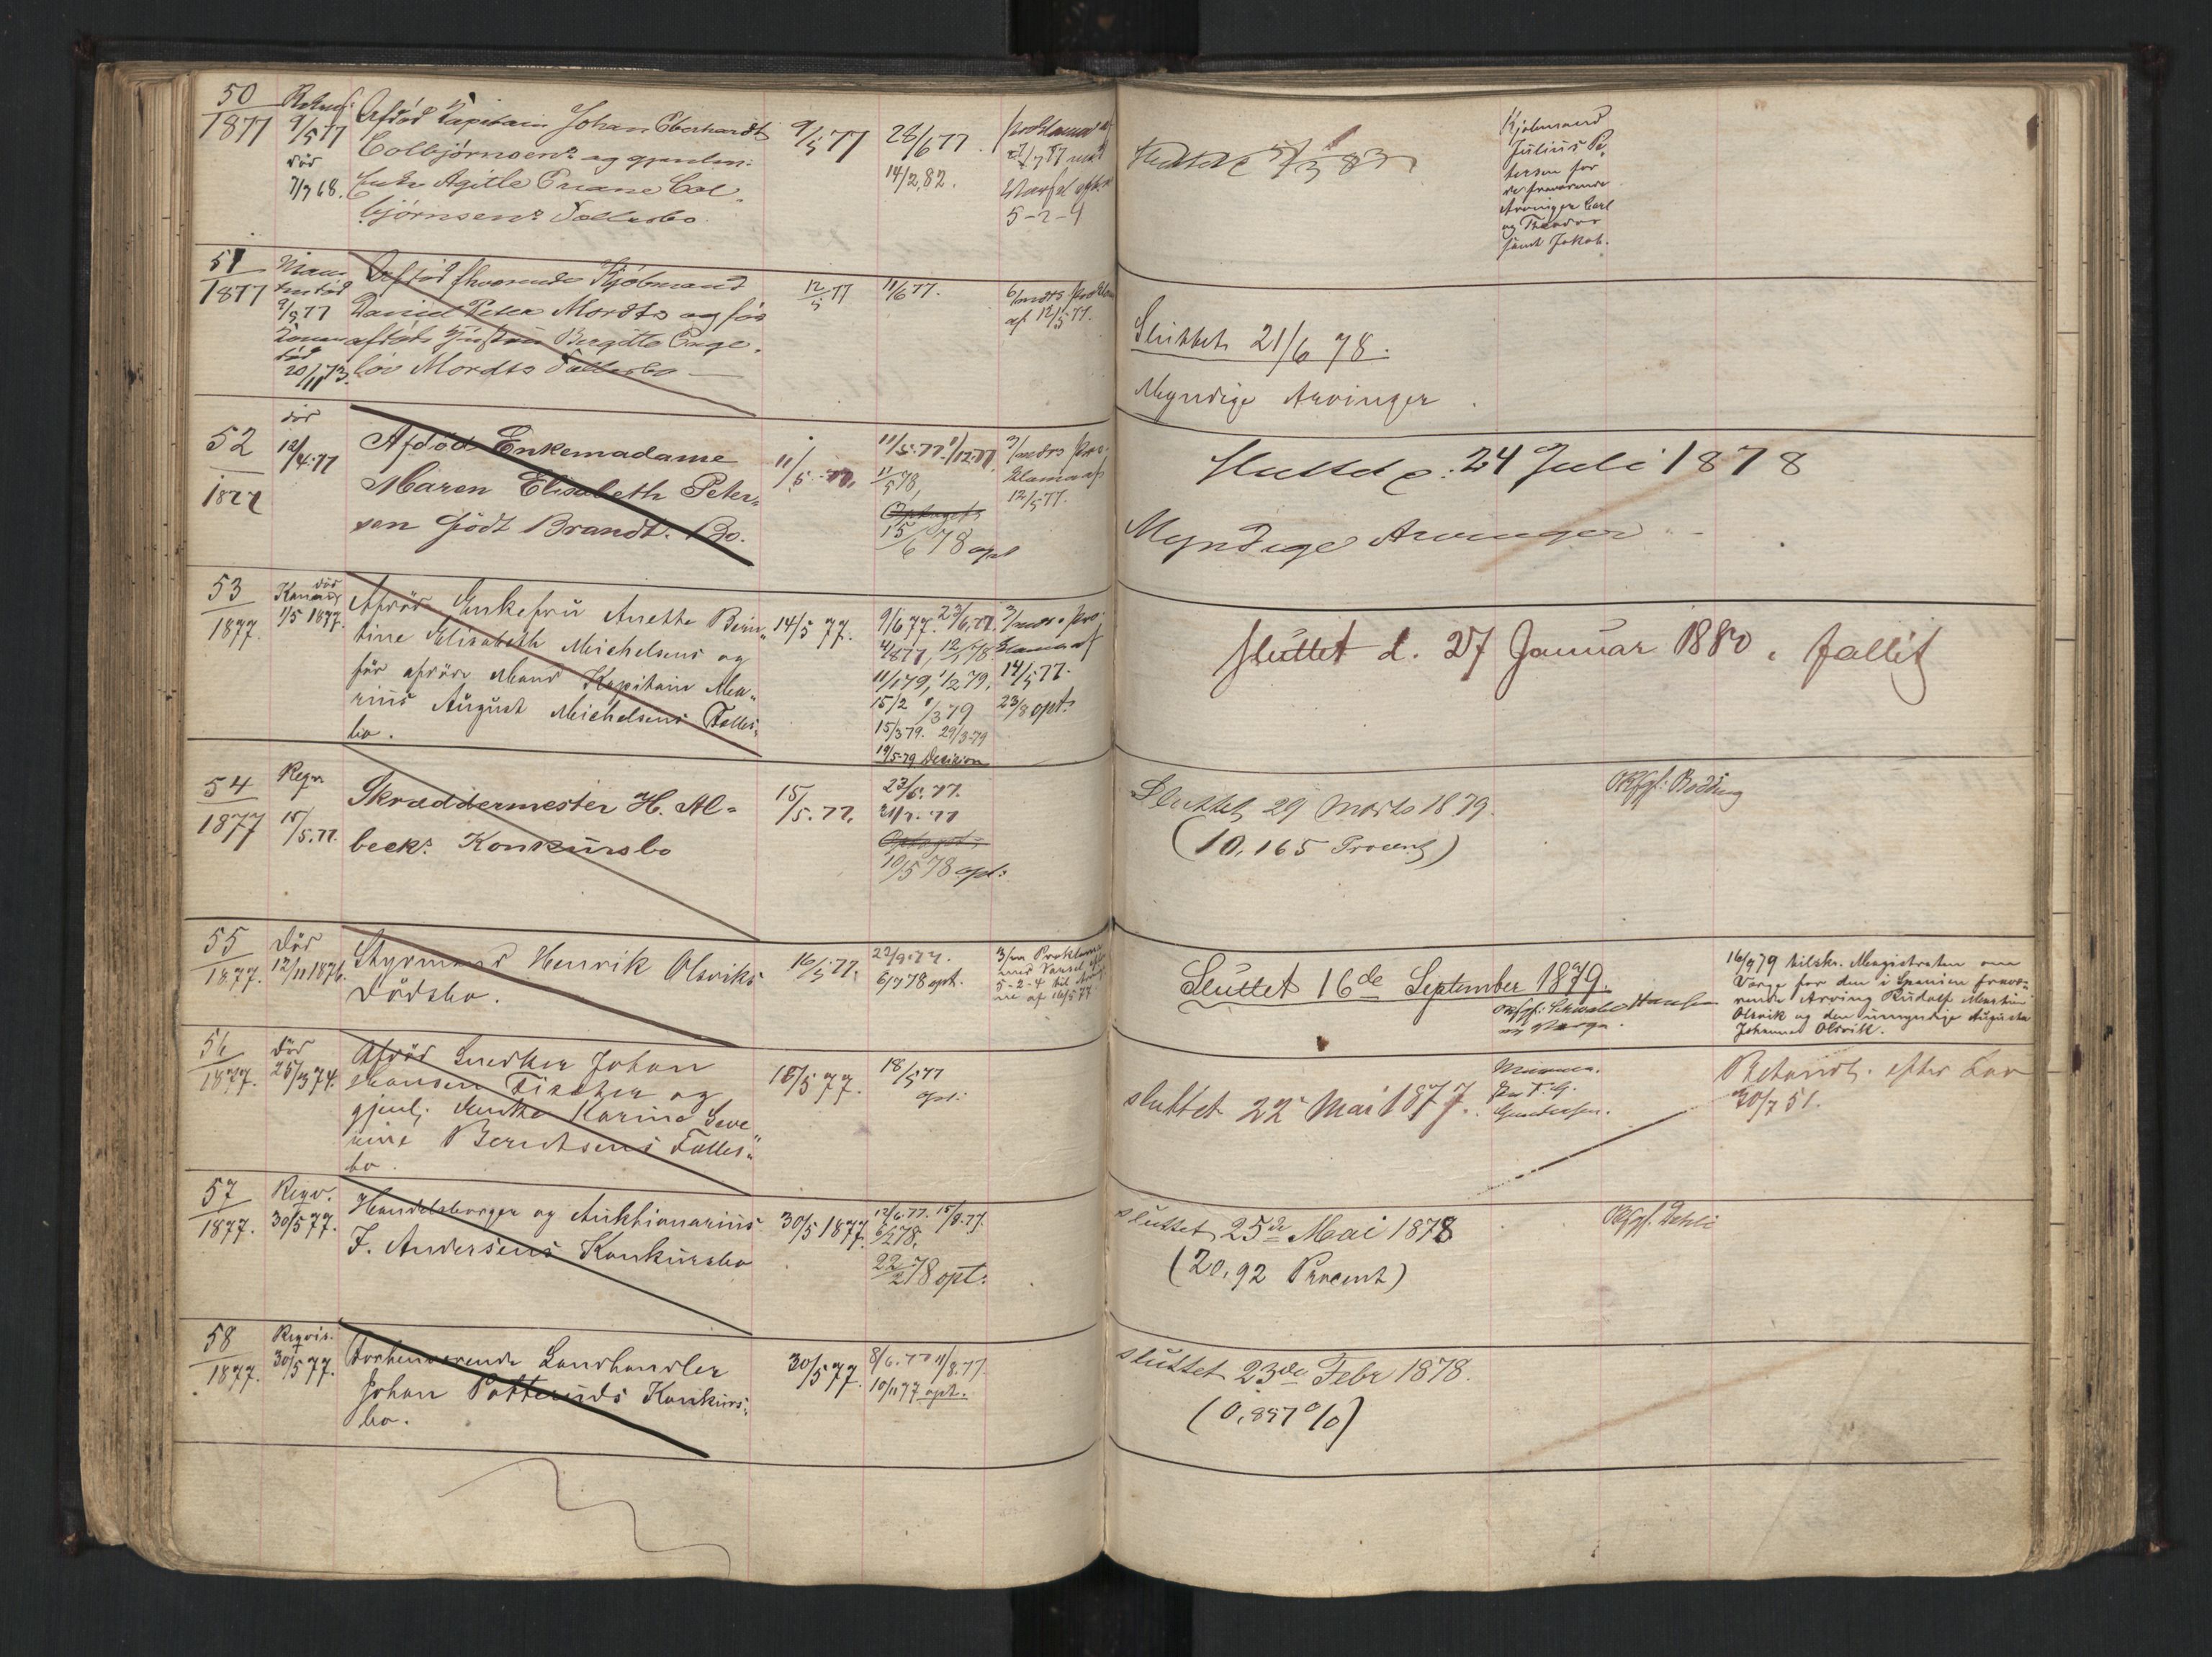 50
1877
9/5 77
død
7/7 68.
Afdød Kapitain Johan Eberhardt
Colbjørnsens og gjenlev.
Enke Col-
bjørnsens Fællesbo
9/5 77
28/6 77.
14/2, 82.
5-2-4
Sluttet
Kjøbmand
Julius Pe-
tersen for
de fraværende
Arvinger Carl
og Theodor
samt Jakob.
51
1877
død
9/5 77
Konen
død
20/11 73.
Afdød fhværende Kjøbmand
David Peter Mordts og før
afdøde Hustru Birgitte Enge-
løv Mordts Fællesbo
12/5 77
11/6 77.
6 mdrs Proklama
af 12/5 77.
Sluttet 21/6 78.
Myndige Arvinger
52
1877
død
12/4 77
Afdød Enkemadame
Maren Elisabeth Peter-
sen født Brandts Bo.
11/5 77.
11/5 77.
11/5 78,
Optaget
15/6 78 opt
3/mdrs Pro-
klama af
12/5 77.
Sluttet d. 24 Juli 1878
Myndige Arvinger
53
1877.
død
1/5 1877.
Afdøde Enkefru Anette Berin-
tine Elisabeth Michelsens og
før afdøde Mand Kapitain Ma-
rius August Michelsens Fælles-
bo.
14/5 77.
9/6 77. 23/6, 77.
11/1 79, 1/2 79.
15/2 /3 79
15/3 79. 29/3 79
19/5 79 Decision
3/mdrs Pro-
klama af
14/5 77.
23/8 opt.
sluttet d. 27 Januar 1880. fallit
54
1877
Reqv
15/5. 77.
Skræddermester H. Al-
becks Konkursbo
15/5. 77.
23/6. 77.
Optaget
10/5 78 opt:
Sluttet 29 Marts 1879.
(10,165 Procent)
ORfgf: Rødberg
55
1877.
Død
12/11 1876.
Styrmand Henrik Olsviks
Dødsbo.
16/5 77.
22/9 77.
6/7 78 opt.
3/m Proklama
med Varsel efter
5-2-4 til Arvin-
ne af 16/5 77
Sluttet 16de September 1879.
ORfgf: Schwabe Hansen
og Værge.
16/9 79 tilskr. Magistraten om
Værge for den i Spanien fravæ-
rende Arving Rudolf Martin
Olsvik og den umyndige Augusta
Johanna Olsvik.
56
1877.
død
25/3 74.
Afdød Snedker Johan
Hansen Fischer og
gjenl. Enke Karine Seve-
rine Berntsens Fælles-
bo.
15/5 77.
18/5 77
opt:
sluttet 22 Mai 1877.
Gundersen.
Behandl. efter Lov
30/7 51.
57
1877.
Reqv.
30/5 77.
Handelsborger og Auktionarius
F. Andersens Konkursbo
30/5 1877.
12/6 77. 15/9 77.
6/2 78.
22/2 78 opt:
sluttet 25de Mai 1878
(20,92 Procent)
ORfgf. Dahle
58
1877.
Reqvis.
30/5 77.
Forhenværende Landhandler
Johan Potteruds Konkurs-
bo.
30/5 77.
8/6. 77 11/8 77.
10/11 77 opt.
sluttet 23de Febr 1878.
(0,857 %)